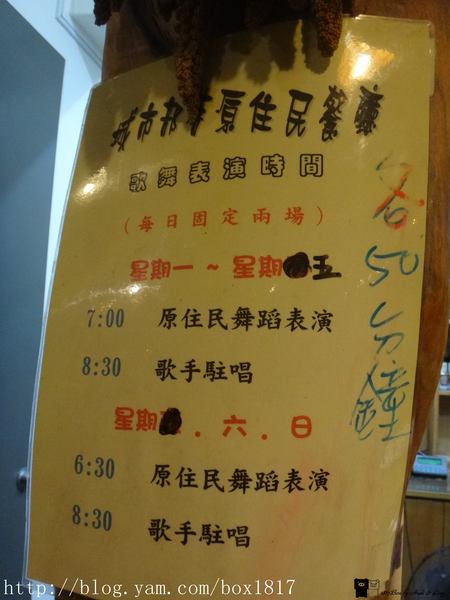 城市部落原住民餐廳
歌舞表演時間
(每日固定兩場)
星期一～星期五
7:00 原住民舞蹈表演
8:30 歌手駐唱
星期．六．日
6:30 原住民舞蹈表演
8:30 歌手駐唱
各50分鐘
http://blog.yam.com/box1817